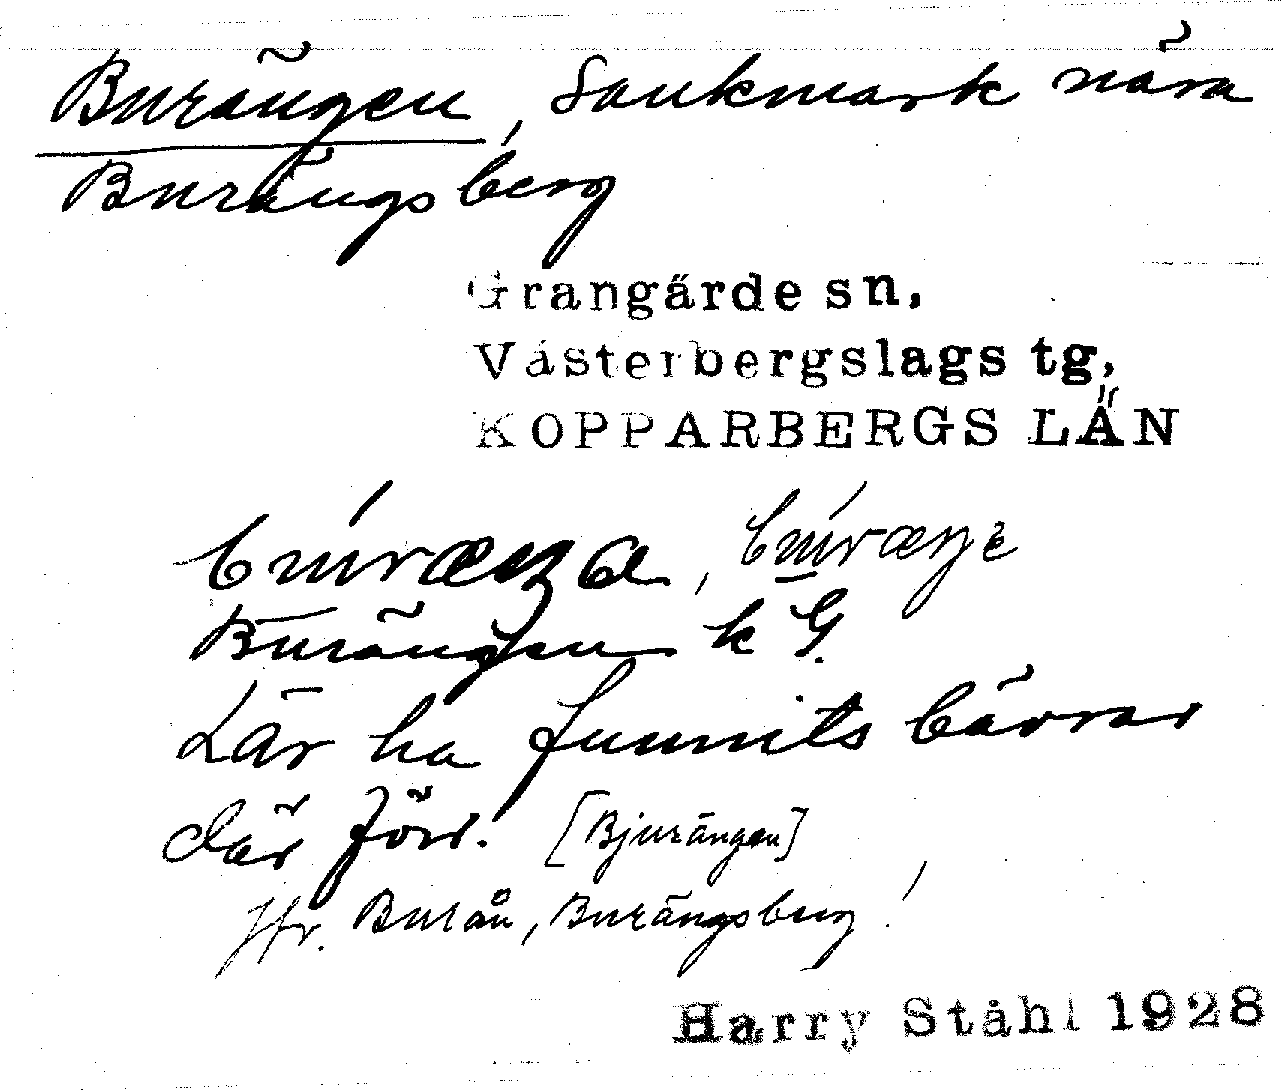 Burängen, Sankmark nära
Burängsberg
Grangärde sn.
Västerbergslags tg,
KOPPARBERGS LÄN
Burängen k G.
Lär ha funnits bävrar
där förr. [Bjurängen]
Jfr. Buraån, Burängsberg!
Harry Ståhl 1928